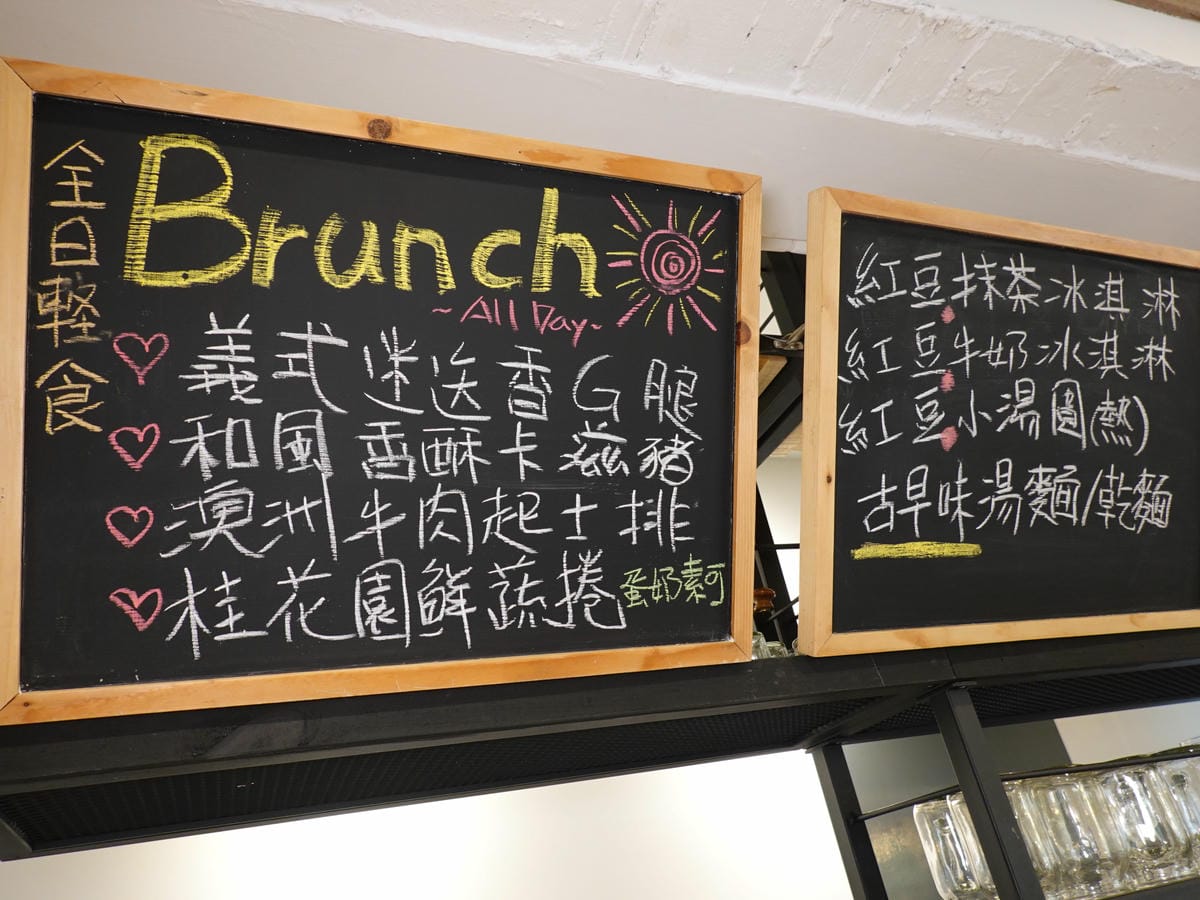 全日輕食
Brunch
~All Day~
義式迷迭香G腿
和風香酥卡滋豬
澳洲牛肉起士排
桂花園鮮蔬捲 蛋奶素可
紅豆抹茶冰淇淋
紅豆牛奶冰淇淋
紅豆小湯圓(熱)
古早味湯麵/乾麵